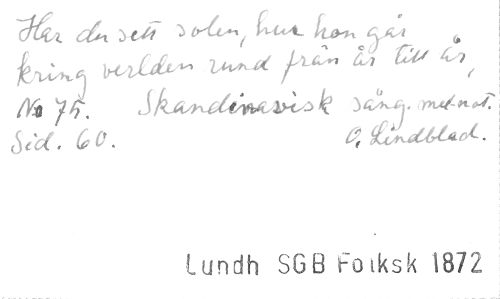 Har du sett solen, hur hon går
kring verlden rund från år till år,
No 75. Skandinavisk sång. med not.
Sid. 60. O. Lindblad.
Lundh SGB Folksk 1872